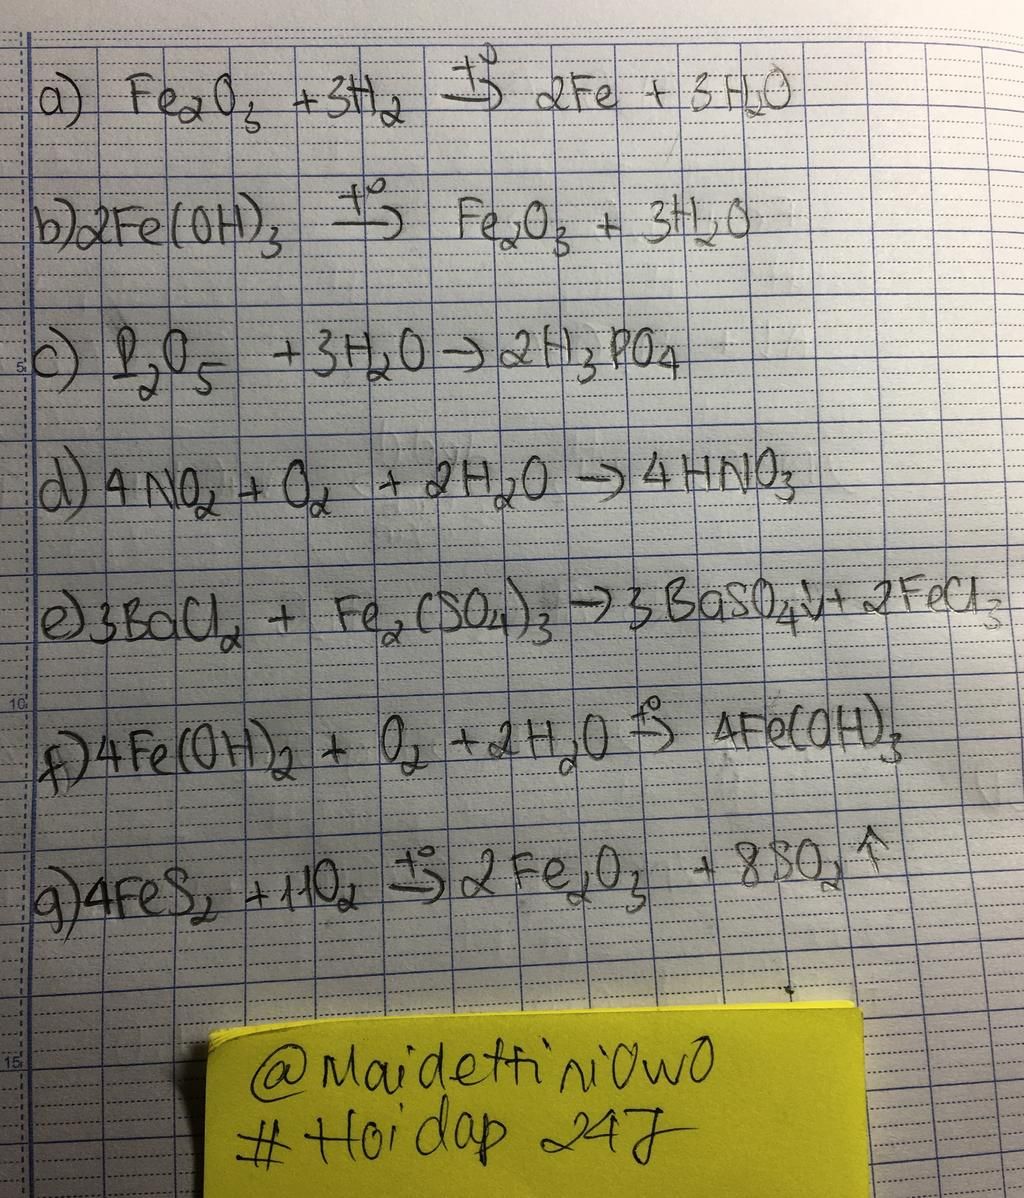 a) Fe₂O₃ + 3H₂ t°→ 2Fe + 3H₂O
b) 2Fe(OH)₃ t°→ Fe₂O₃ + 3H₂O
5
c) P₂O₅ + 3H₂O → 2H₃PO₄
d) 4NO₂ + O₂ + 2H₂O → 4HNO₃
e) 3BaCl₂ + Fe₂(SO₄)₃ → 3BaSO₄↓ + 2FeCl₃
10
f) 4Fe(OH)₂ + O₂ + 2H₂O t°→ 4Fe(OH)₃
g) 4FeS₂ + 11O₂ t°→ 2Fe₂O₃ + 8SO₂↑
15
@MaidettiniOwO
# Hoidap 247